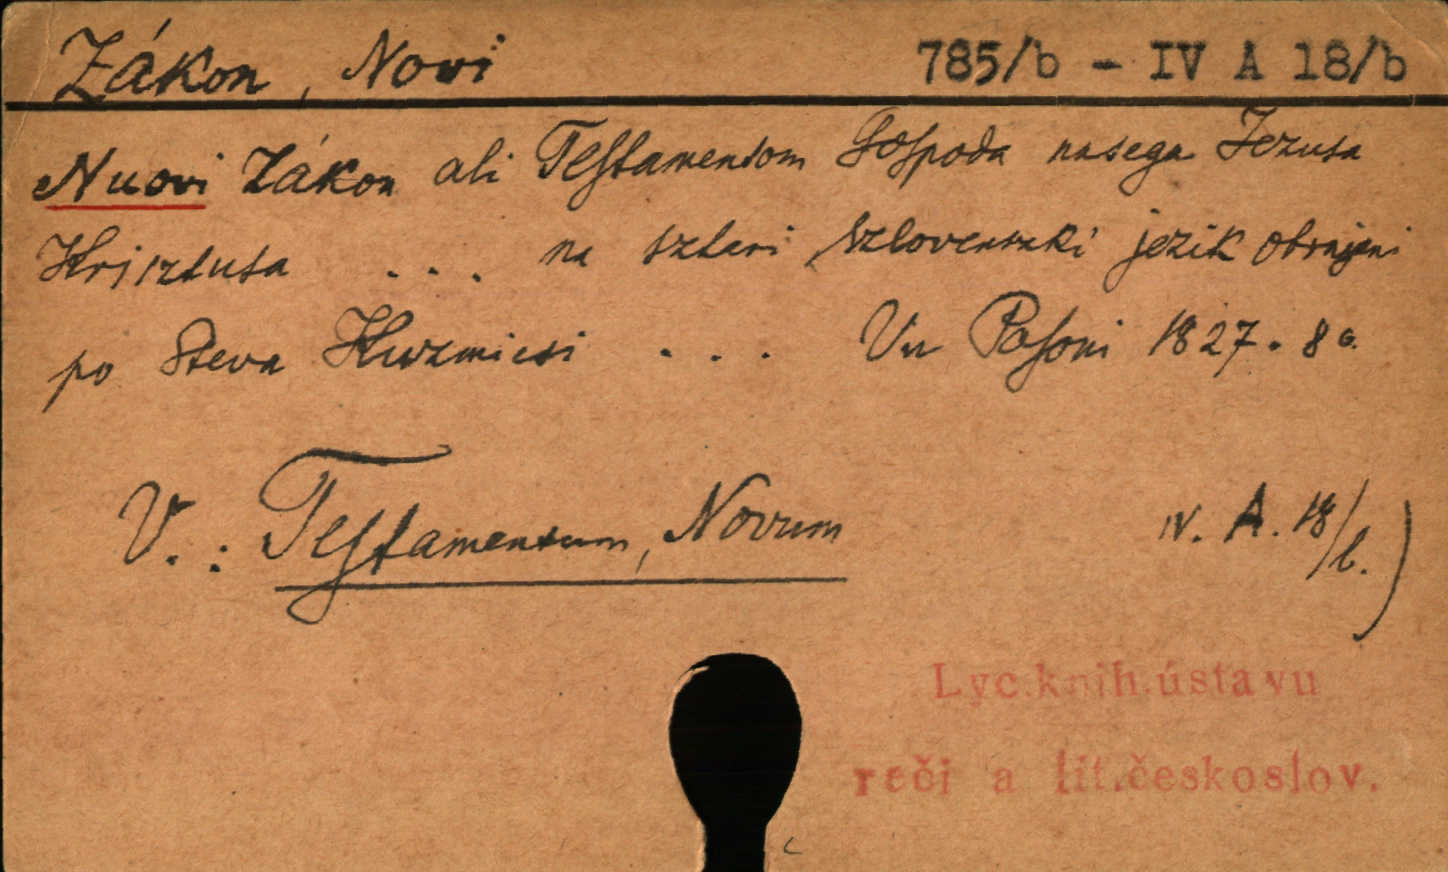 Zákon, Novi 785/b - IV A 18/b
Nuovi Zákon ali Testamentom Gospoda nasega Jezusa
Krisztusa ... na sztari szlovenszki jezik obrnjeni
po Steva Kuzmicsi ... Vu Posoni 1827. 8°.
V.: Testamentum, Novum IV. A. 18/b.)
Lyc.knih.ústavu
reči a lit.českoslov.